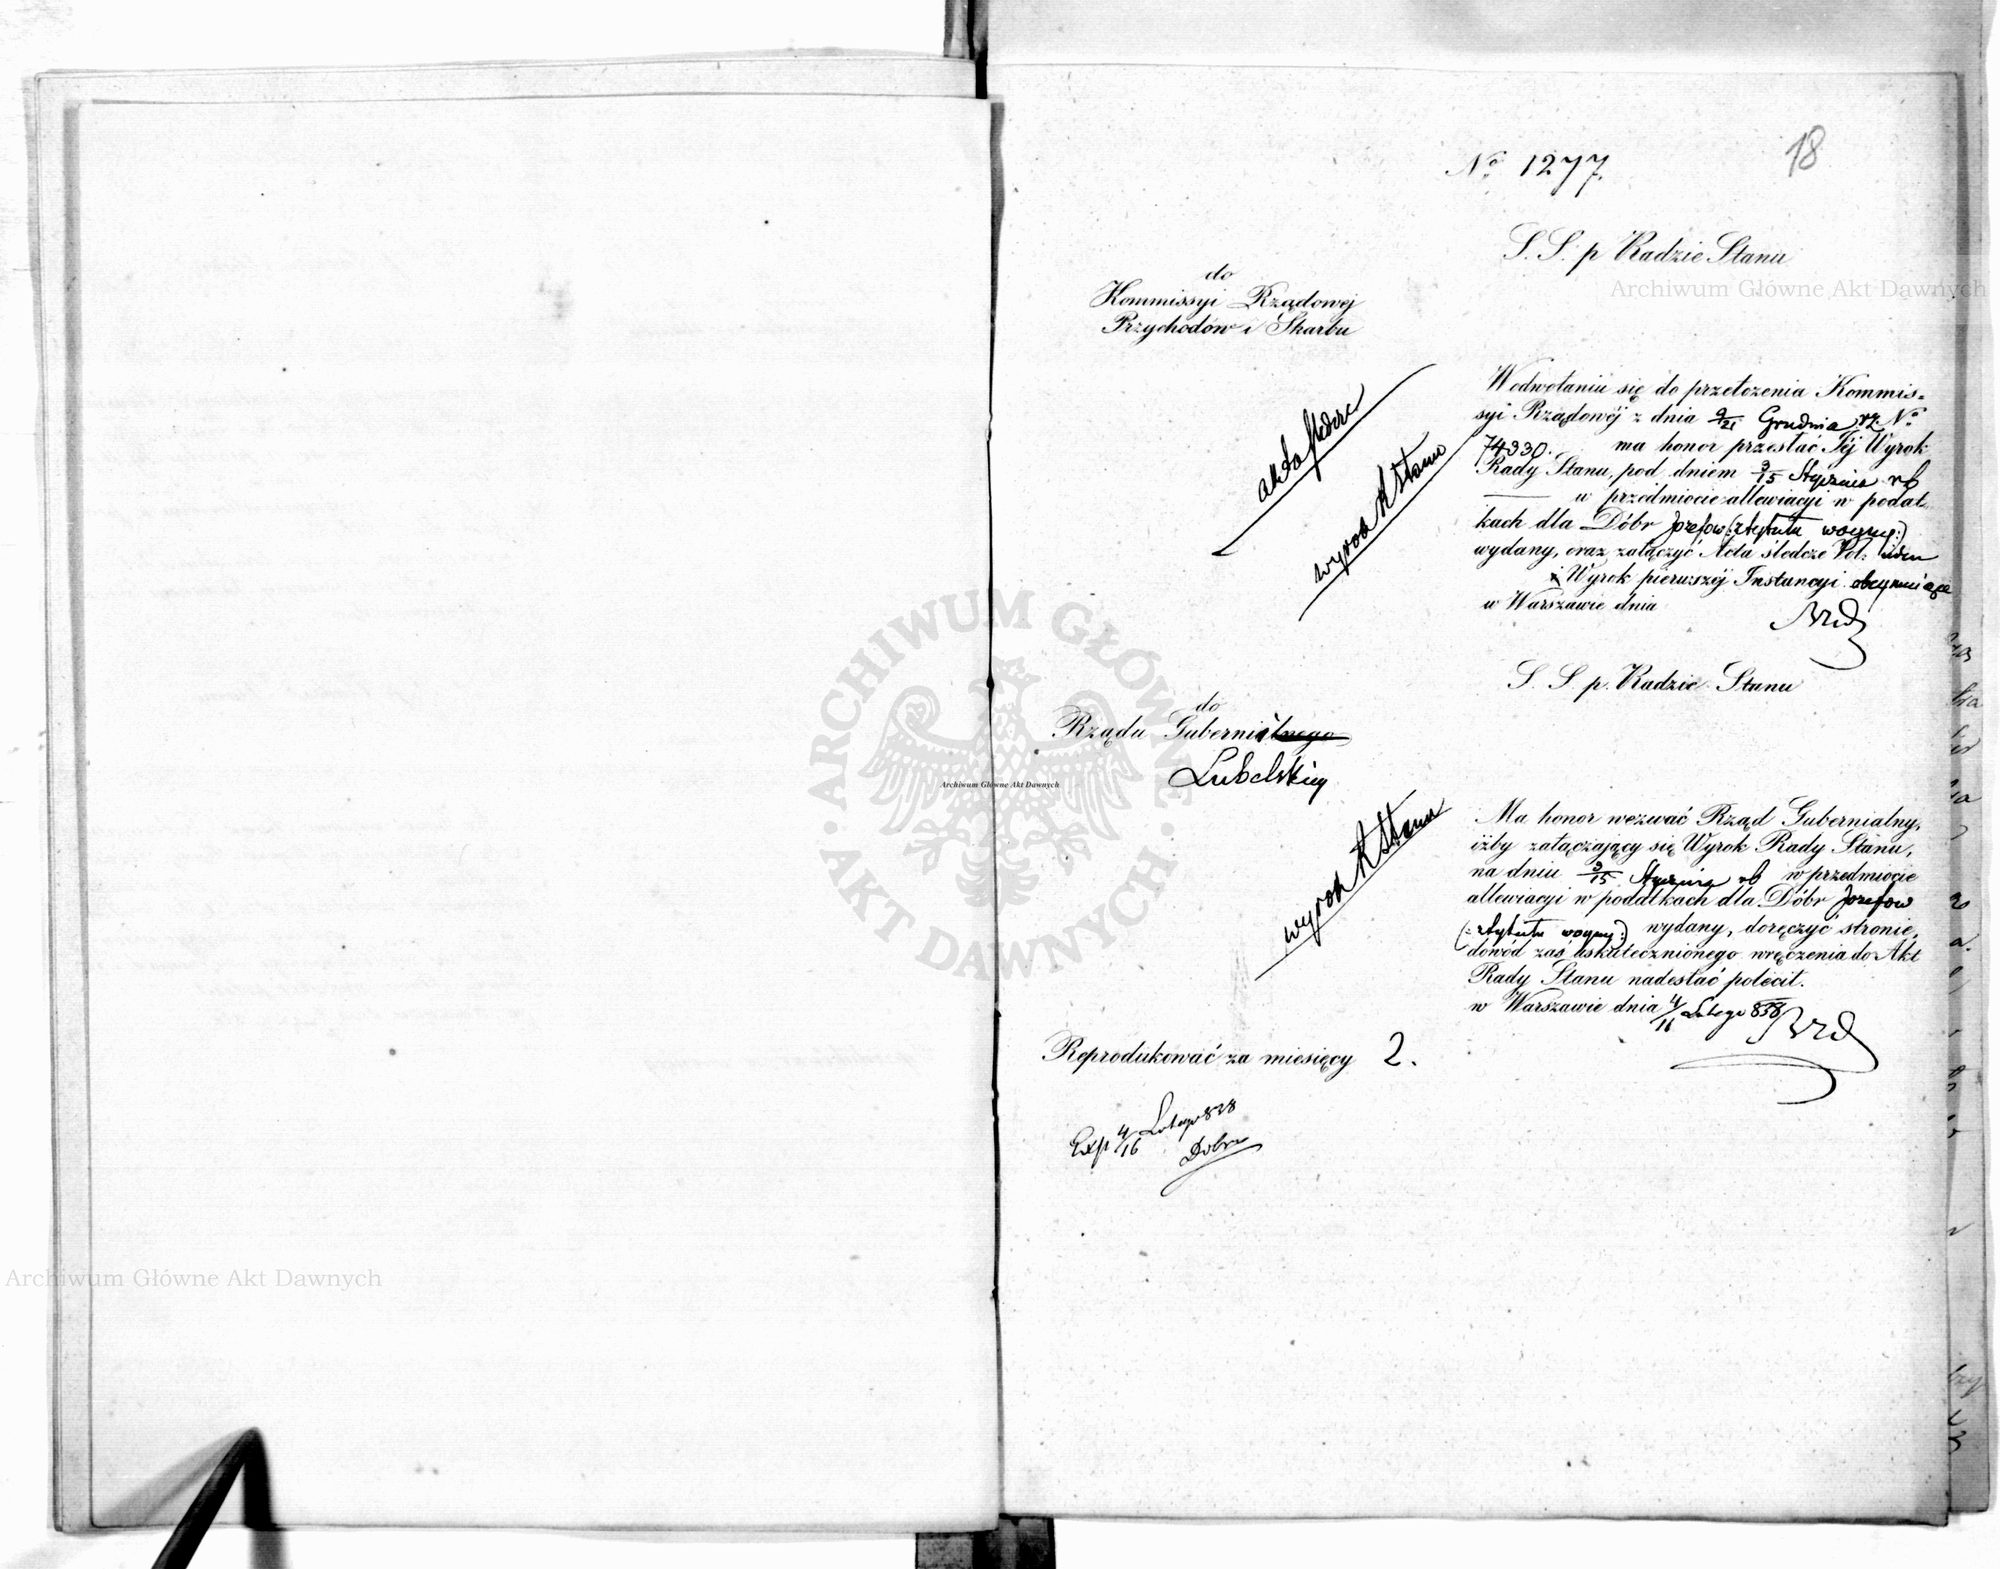 18
Nº 1277.
S. S. p Radzie Stanu
do
Kommissyi Rządowej
Przychodów i Skarbu
W odwołaniu się do przełożenia Kommis-
syi Rządowéj z dnia 9/21 Grudnia rz Nº
74330. ma honor przesłać Jéj Wyrok
Rady Stanu, pod dniem 3/15 Stycznia rb
w przedmiocie allewiacyi w podat-
kach dla Dóbr Jozefow (: z tytułu woyny :)
wydany, oraz załączyć Acta śledcze Vol:
i Wyrok pierwszéj Instancyi obeymujące
w Warszawie dnia
akta śledcze
wyrok R Stanu
S. S. p. Radzie Stanu
do
Rządu Gubernialnego
Lubelskiey
Ma honor wezwać Rząd Gubernialny,
iżby załączający się Wyrok Rady Stanu,
na dniu 3/15 Stycznia rb w przedmiocie
allewiacyi w podatkach dla Dóbr Jozefow
(: z tytułu woyny :) wydany, doręczyć stronie,
dowód zaś uskutecznionego wręczenia do Akt
Rady Stanu nadesłać polecił.
w Warszawie dnia 4/16 Lutego 838
wyrok R Stanu
Reprodukować za miesięcy 2.
Exp 4/16 Lutego 838
Archiwum Główne Akt Dawnych
Archiwum Główne Akt Dawnych
Archiwum Główne Akt Dawnych
ARCHIWUM GŁÓWNE
AKT DAWNYCH